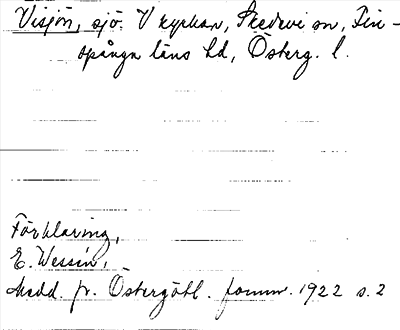 Visjön, sjö. V kyrkan, Skedevi sn, Fin-
spånga läns hd, Österg. l.
Förklaring,
E. Wessén,
Medd. fr. Östergötl. fornm. 1922 s. 2